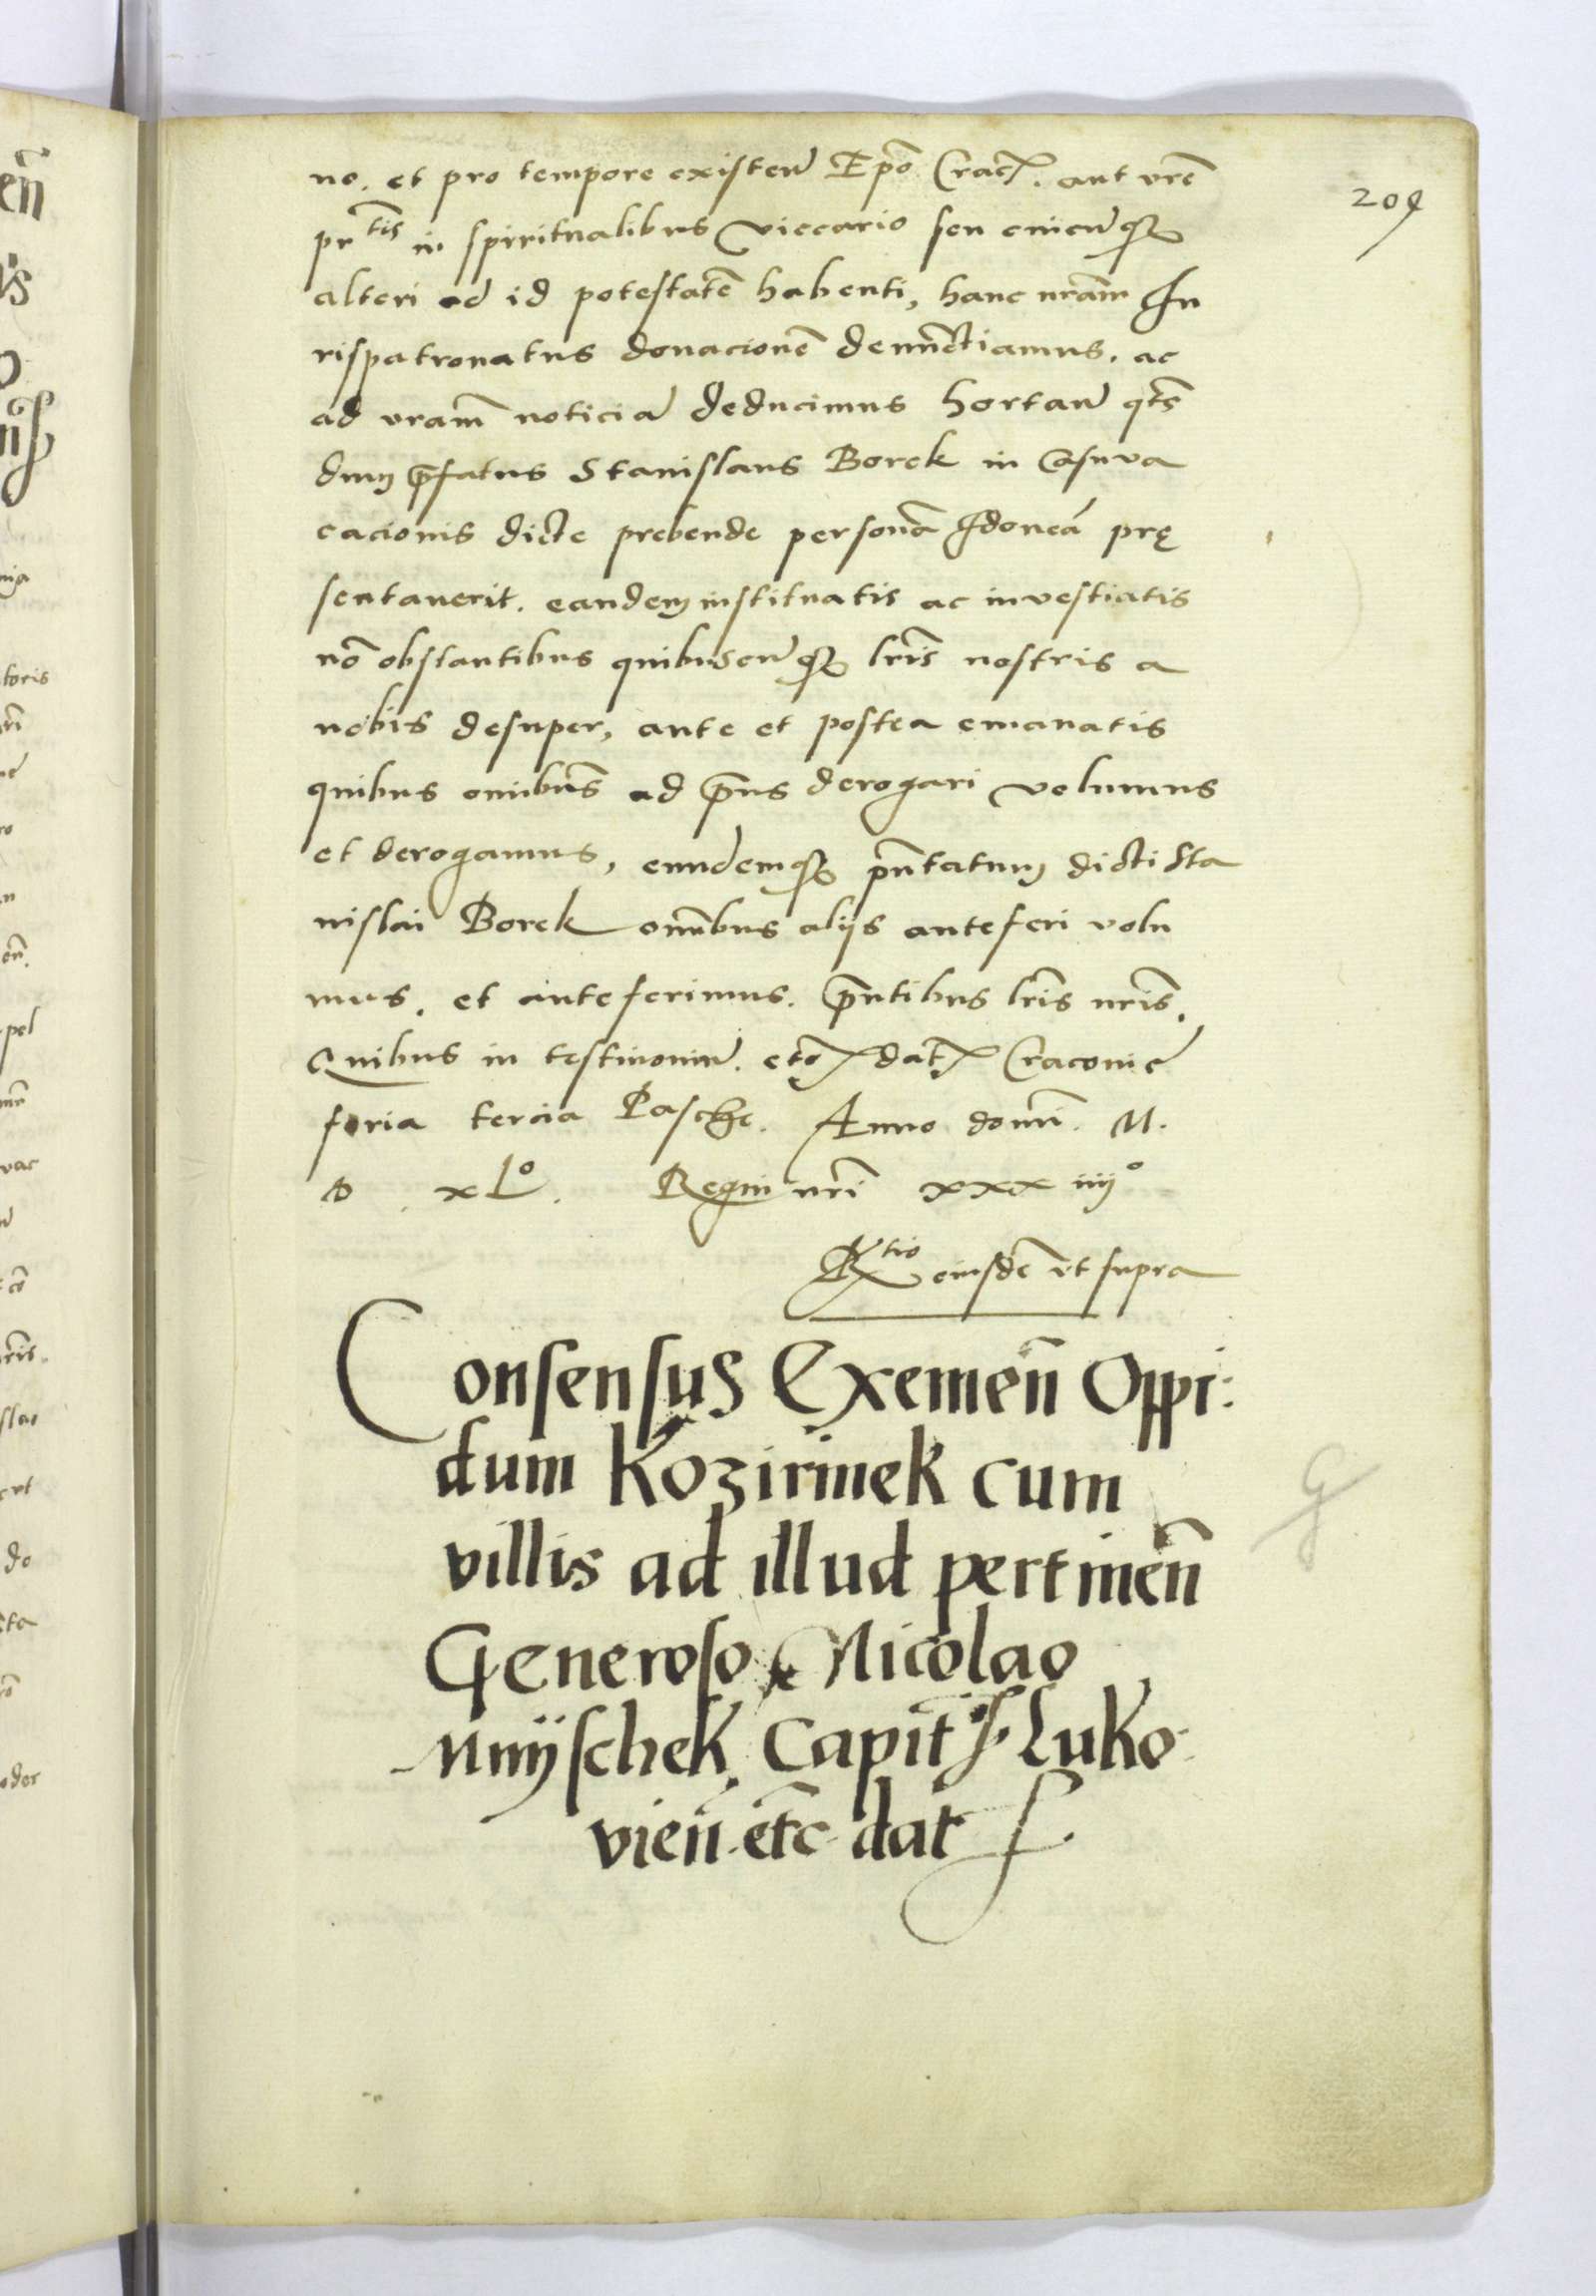 209
no. et pro tempore existen̄ Ep̄o Crac̄. aut vr̄e
pr̄tis in spiritualibus viccario seu cuicunq̨
alteri ad id potestatē habenti, hanc nr̄am Iu
rispatronatus donacionē denūctiamus. ac
ad vr̄am noticiā deducimus hortan̄ qt̄s
dum p̄fatus Stanislaus Borek in casu va
cacionis dicte prebende personā Idoneā prę
sentauerit. eandem instituatis ac investiatis
nō obstantibus quibuscunq̨ lr̄is nostris a
nobis desuper, ante et postea emanatis
quibus om̄ibus ad p̄ns derogari volumus
et derogamus, eundemq̨ pn̄tatum dicti Sta
nislai Borek omībus alijs anteferi volu
mus. et anteferimus. p̄ntibus lr̄is nr̄is.
Quibus in testimoniū. etc̄ dat̄ Cracouie
feria tercia Pasche. Anno domī. M.
D. xLº. Regni nr̄i xxx iiijº
R̄tio eiusdē vt supra
Consensus Exemen̄ Oppi:
dum Kozirinek cum
villis ad illud pertinen̄
Generoso Nicolao
Mnijschek, Capit̄ Luko
vien̄. et̄c dat